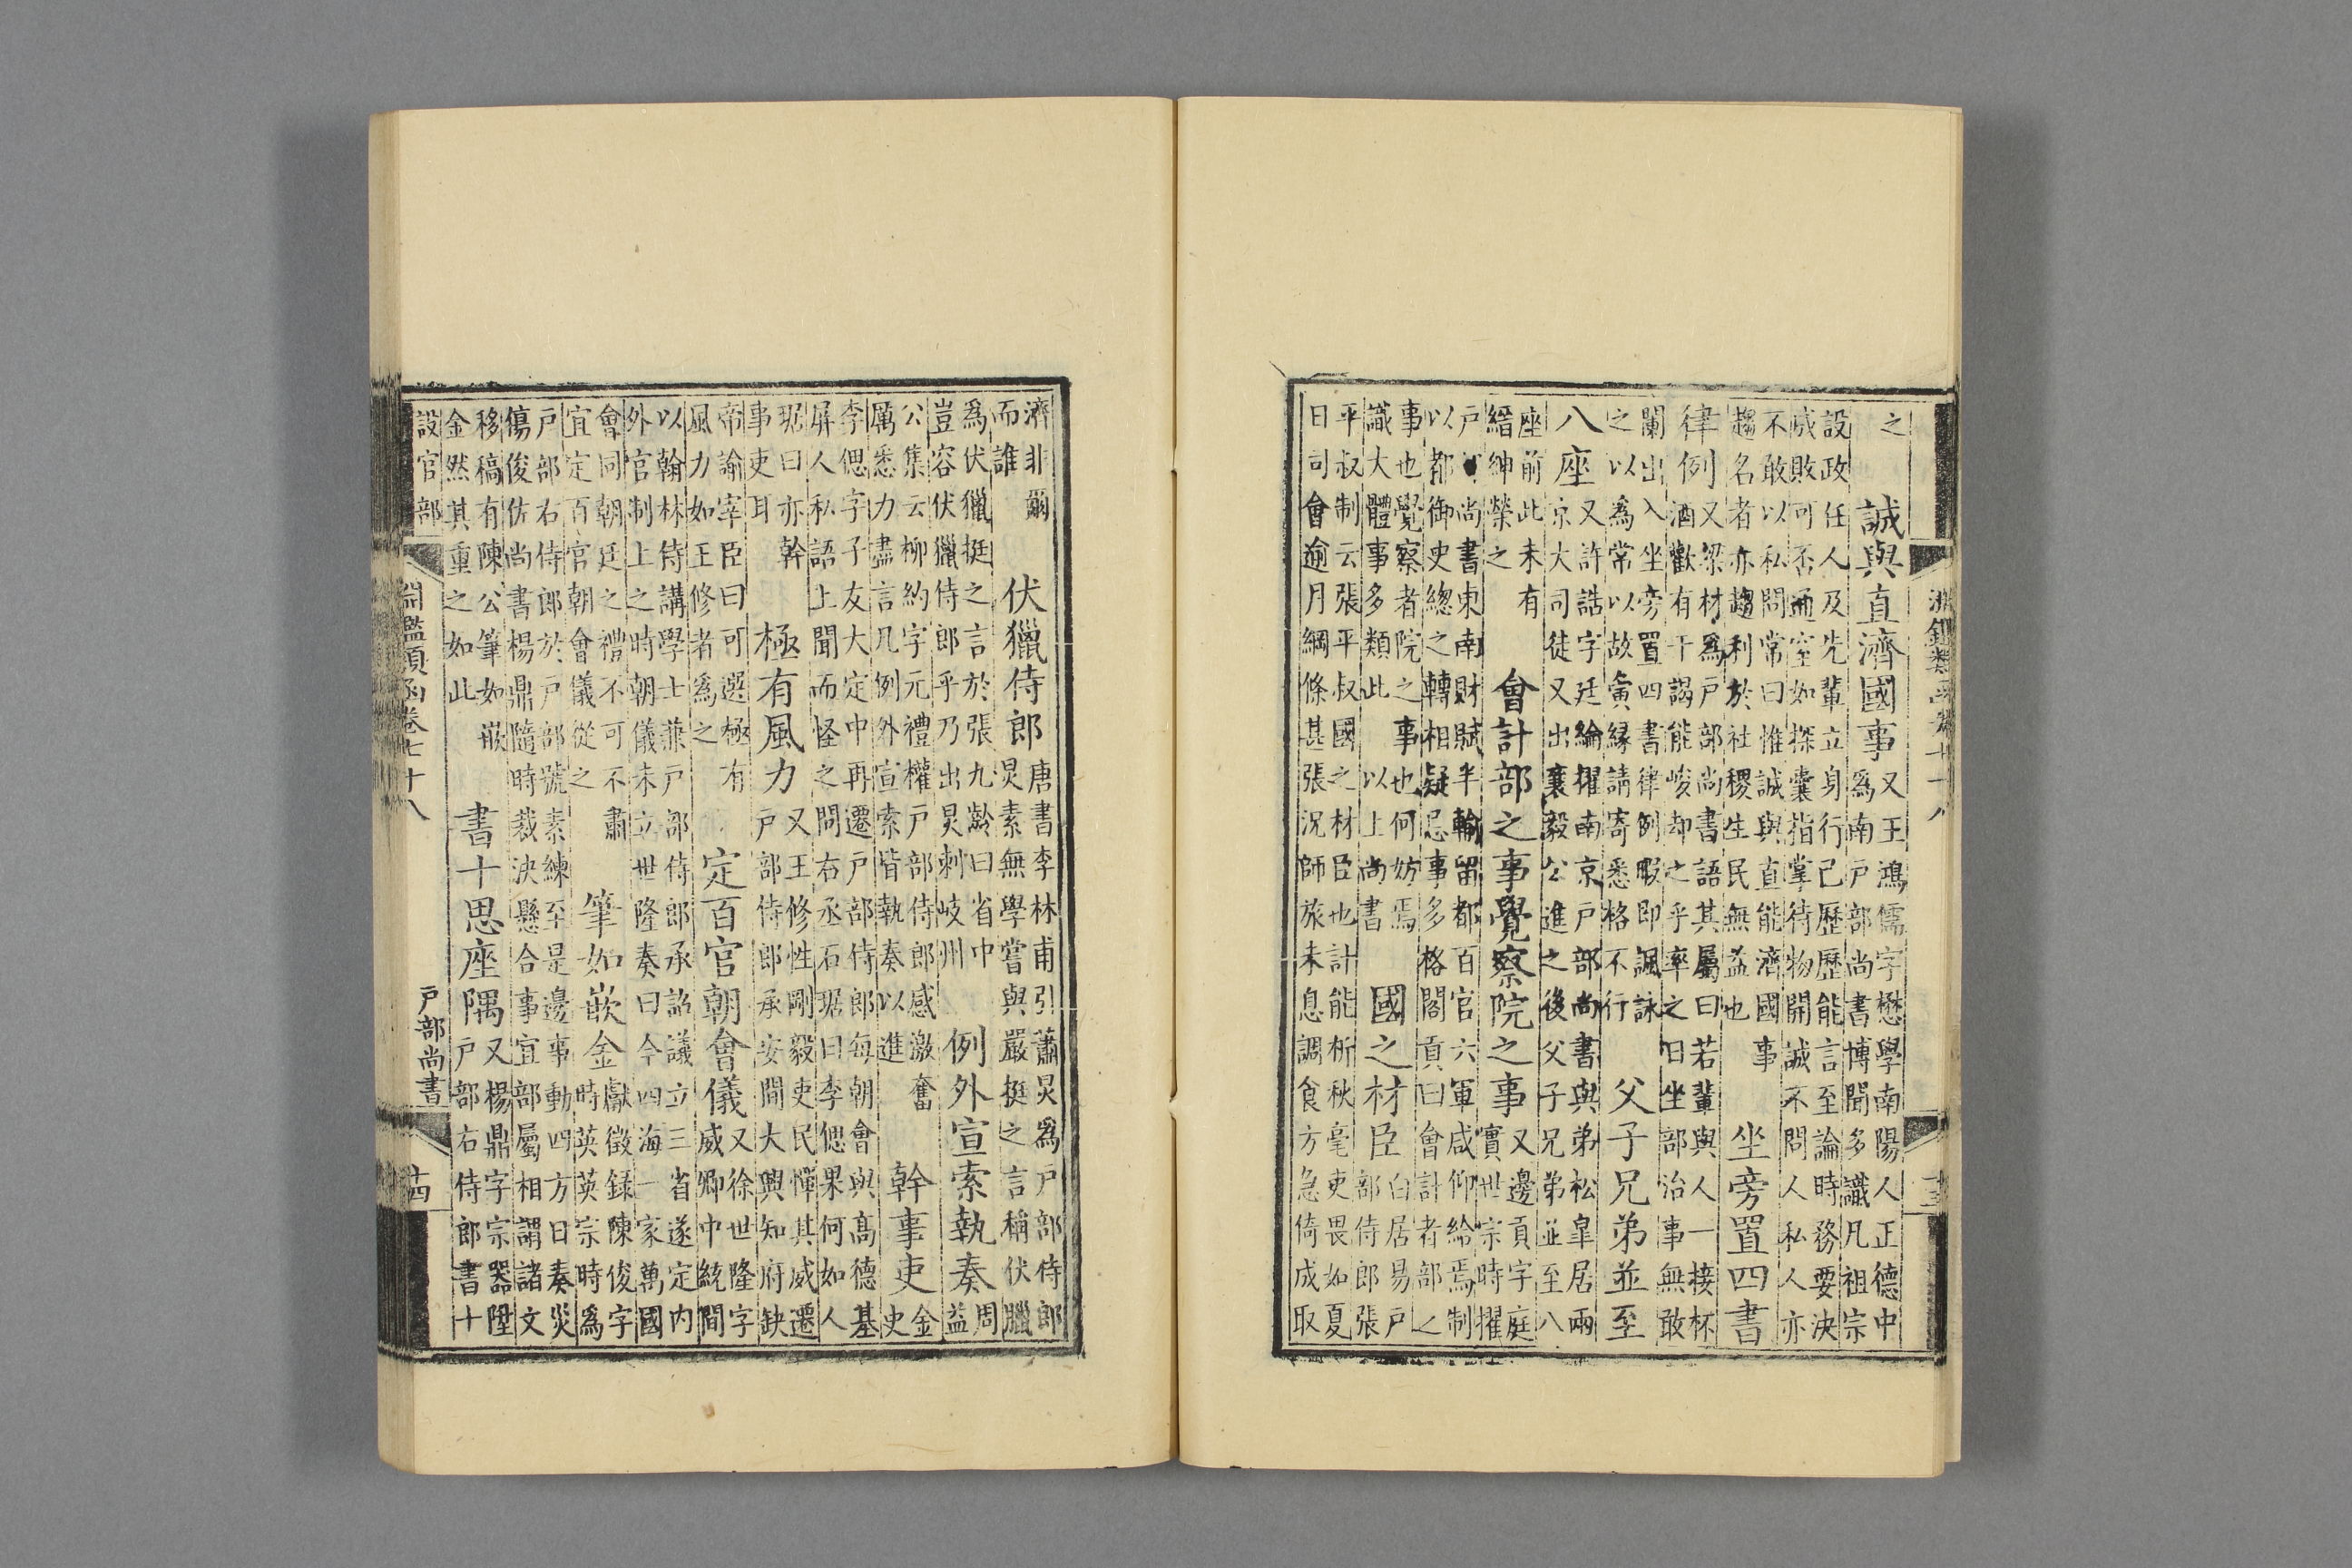 之
誠與直濟國事
又王鴻儒字懋學南陽人正德中
爲南戶部尚書博聞多識凡祖宗
設政任人及先輩立身行己歷歷能言至論時務要決
成敗可否通室如探囊指掌待物開誠不問人私人亦
不敢以私問常曰惟誠與直能濟國事
趨名者亦趨利於社稷生民無益也
坐旁置四書
律例
又梁材爲戶部尚書語其屬曰若輩與人一接杯
酒歡有干謁能峻却之乎率之日坐部治事無敢
闌出入坐旁置四書律例暇即諷詠
之以爲常以故寅緣請寄悉格不行
父子兄弟並至
八座
又許誥字廷綸擢南京戶部尚書與弟松皐居兩
京大司徒又出襄毅公進之後父子兄弟並至八
座前此未有
縉紳榮之
會計部之事覺察院之事
又邊貢字庭
實世宗時擢
戶尚書東南財賦半輸留都百官六軍咸仰給焉制
以都御史總之轉相疑忌事多格閣貢曰會計者部之
事也覺察者院之事也何妨焉
識大體事多類此 以上尚書
國之材臣
白居易戶
部侍郎張
平叔制云張平叔國之材臣也計能析秋毫吏畏如夏
日司會逾月綱條甚張況師旅未息調食方急倚成取
濟非爾
而誰
伏獵侍郎
唐書李林甫引蕭炅爲戶部侍郎
炅素無學嘗與嚴挺之言稱伏臘
爲伏獵挺之言於張九齡曰省中
豈容伏獵侍郎乎乃出炅刺岐州
例外宣索執奏
周
益
公集云柳約字元禮權戶部侍郎感激奮
厲悉力盡言凡例外宣索皆執奏以進
幹事吏
金
史
李偲字子友大定中再遷戶部侍郎每朝會與高德基
屏人私語上聞而怪之問右丞石琚曰李偲果何如人
琚曰亦幹
事吏耳
極有風力
又王修性剛毅吏民憚其威遷
戶部侍郎承安間大興知府缺
帝諭宰臣曰可選極有
風力如王修者爲之
定百官朝會儀
又徐世隆字
威卿中統間
以翰林侍講學士兼戶部侍郎承詔議立三省遂定內
外官制上之時朝儀未立世隆奏曰今四海一家萬國
會同朝廷之禮不可不肅
宜定百官朝會儀從之
筆如嵌金
獻徵錄陳俊字
時英英宗時爲
戶部右侍郎於戶部號素練至是邊事動四方日奏災
傷俊佐尚書楊鼎隨時裁決懸合事宜部屬相謂諸文
移稿有陳公筆如嵌
金然其重之如此
書十思座隅
又楊鼎字宗器陞
戶部右侍郎書十
設官部
淵鑑類函卷七十八
戶部尚書
十四